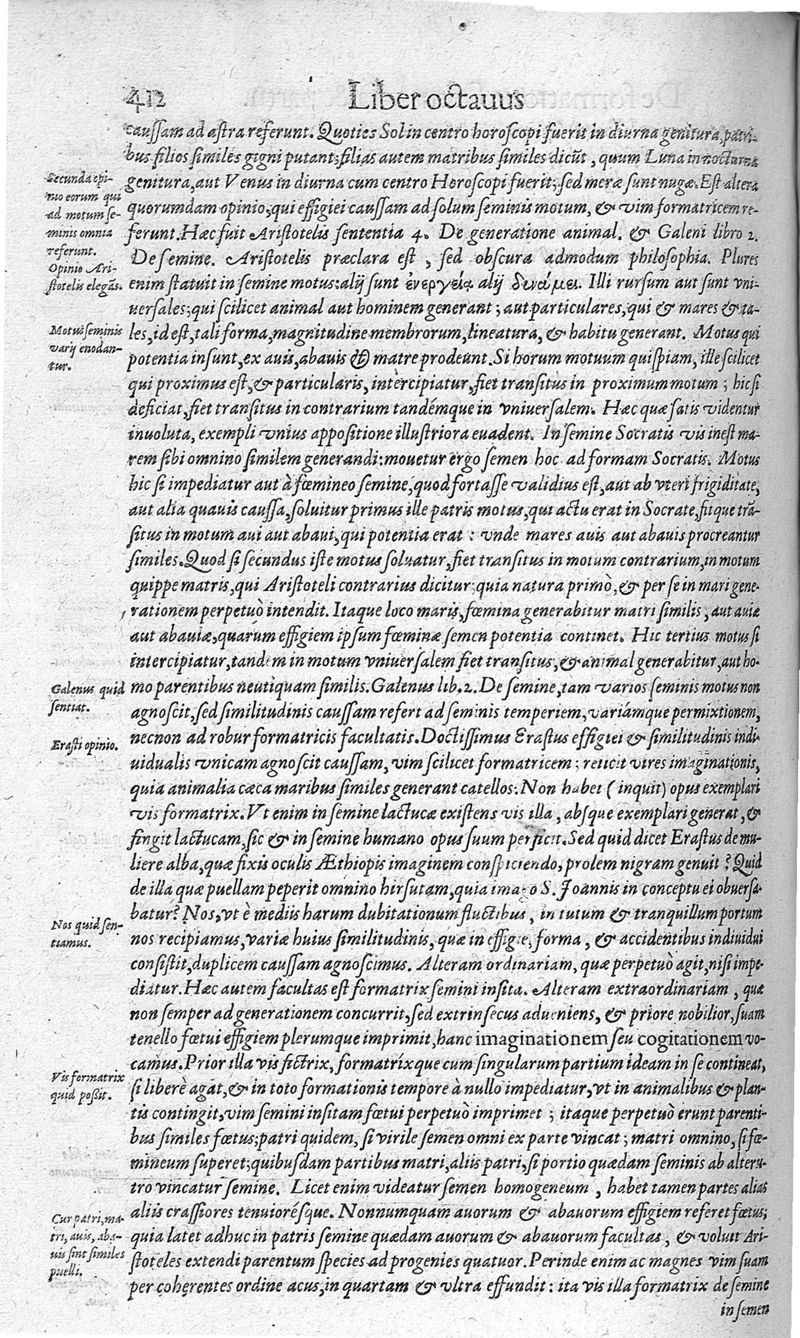 412
Liber octauus
caussam ad astra referunt. Quoties Sol in centro horoscopi fuerit in diurna genitura, patri-
bus filios similes gigni putant; filias autem matribus similes dicūt, quum Luna in nocturna
genitura, aut Venus in diurna cum centro Horoscopi fuerit; sed meræ sunt nugæ. Est altera
quorumdam opinio; qui effigiei caussam ad solum seminis motum, & vim formatricem re-
ferunt. Hæc fuit Aristotelis sententia 4. De generatione animal. & Galeni libro 2.
De semine. Aristotelis præclara est, sed obscura admodum philosophia. Plures
enim statuit in semine motus: alij sunt ἐνεργείᾳ alij δυνάμει. Illi rursum aut sunt vni-
uersales; qui scilicet animal aut hominem generant; aut particulares, qui & mares & ta-
les, id est, tali forma, magnitudine membrorum, lineatura, & habitu generant. Motus qui
potentia insunt, ex auis, abauis & matre prodeunt. Si horum motuum quispiam, ille scilicet
qui proximus est, & particularis, intèrcipiatur, fiet transitus in proximum motum; hic si
deficiat, fiet transitus in contrarium tandémque in vniuersalem. Hæc quæ satis videntur
inuoluta, exempli vnius appositione illustriora euadent. In semine Socratis vis inest ma-
rem sibi omnino similem generandi: mouetur ergo semen hoc ad formam Socratis. Motus
hic si impediatur aut à fœmineo semine, quod fortasse validius est, aut ab vteri frigiditate,
aut alia quauis caussa, soluitur primus ille patris motus, qui actu erat in Socrate, fitque trā-
situs in motum aui aut abaui, qui potentia erat: vnde mares auis aut abauis procreantur
similes. Quod si secundus iste motus soluatur, fiet transitus in motum contrarium, in motum
quippe matris, qui Aristoteli contrarius dicitur; quia natura primò, & per se in mari gene-
rationem perpetuò intendit. Itaque loco maris, fœmina generabitur matri similis, aut auiæ
aut abauiæ, quarum effigiem ipsum fœminæ semen potentia continet. Hic tertius motus si
intercipiatur, tandem in motum vniuersalem fiet transitus, & animal generabitur, aut ho-
mo parentibus neutiquam similis. Galenus lib. 2. De semine, tam varios seminis motus non
agnoscit, sed similitudinis caussam refert ad seminis temperiem, variámque permixtionem,
necnon ad robur formatricis facultatis. Doctissimus Erastus effigiei & similitudinis indi-
uidualis vnicam agnoscit caussam, vim scilicet formatricem; reiicit vires imaginationis,
quia animalia cæca maribus similes generant catellos. Non habet (inquit) opus exemplari
vis formatrix. Vt enim in semine lactucæ existens vis illa, absque exemplari generat, &
fingit lactucam, sic & in semine humano opus suum perficit. Sed quid dicet Erastus de mu-
liere alba, quæ fixis oculis Æthiopis imaginem conspiciendo, prolem nigram genuit? Quid
de illa quæ puellam peperit omnino hirsutam, quia imago S. Joannis in conceptu ei obuersa-
batur? Nos, vt è mediis harum dubitationum fluctibus, in tutum & tranquillum portum
nos recipiamus, variæ huius similitudinis, quæ in effigie, forma, & accidentibus indiuidui
consistit, duplicem caussam agnoscimus. Alteram ordinariam, quæ perpetuò agit, nisi impe-
diatur. Hæc autem facultas est formatrix semini insita. Alteram extraordinariam, quæ
non semper ad generationem concurrit, sed extrinsecus adueniens, & priore nobilior, suam
tenello fœtui effigiem plerumque imprimit, hanc imaginationem seu cogitationem vo-
camus. Prior illa vis fictrix, formatrixque cum singularum partium ideam in se contineat,
si liberè agat, & in toto formationis tempore à nullo impediatur, vt in animalibus & plan-
tis contingit, vim semini insitam fœtui perpetuò imprimet; itaque perpetuò erunt parenti-
bus similes fœtus; patri quidem, si virile semen omni ex parte vincat; matri omnino, si fœ-
mineum superet; quibusdam partibus matri, aliis patri, si portio quædam seminis ab alteru-
tro vincatur semine. Licet enim videatur semen homogeneum, habet tamen partes alias
aliis crassiores tenuiorésque. Nonnumquam auorum & abauorum effigiem referet fœtus;
quia latet adhuc in patris semine quædam auorum & abauorum facultas, & voluit Ari-
stoteles extendi parentum species ad progenies quatuor. Perinde enim ac magnes vim suam
per cohærentes ordine acus, in quartam & vltra effundit: ita vis illa formatrix de semine
in semen
Secunda opi-
nio eorum qui
ad motum se-
minis omnia
referunt.
Opinio Ari-
stotelis elegās.
Motus seminis
varij enodan-
tur.
Galenus quid
sentiat.
Erasti opinio.
Nos quid sen-
tiamus.
Vis formatrix
quid possit.
Cur patri, ma-
tri, auis, aba-
uis sint similes
puelli.